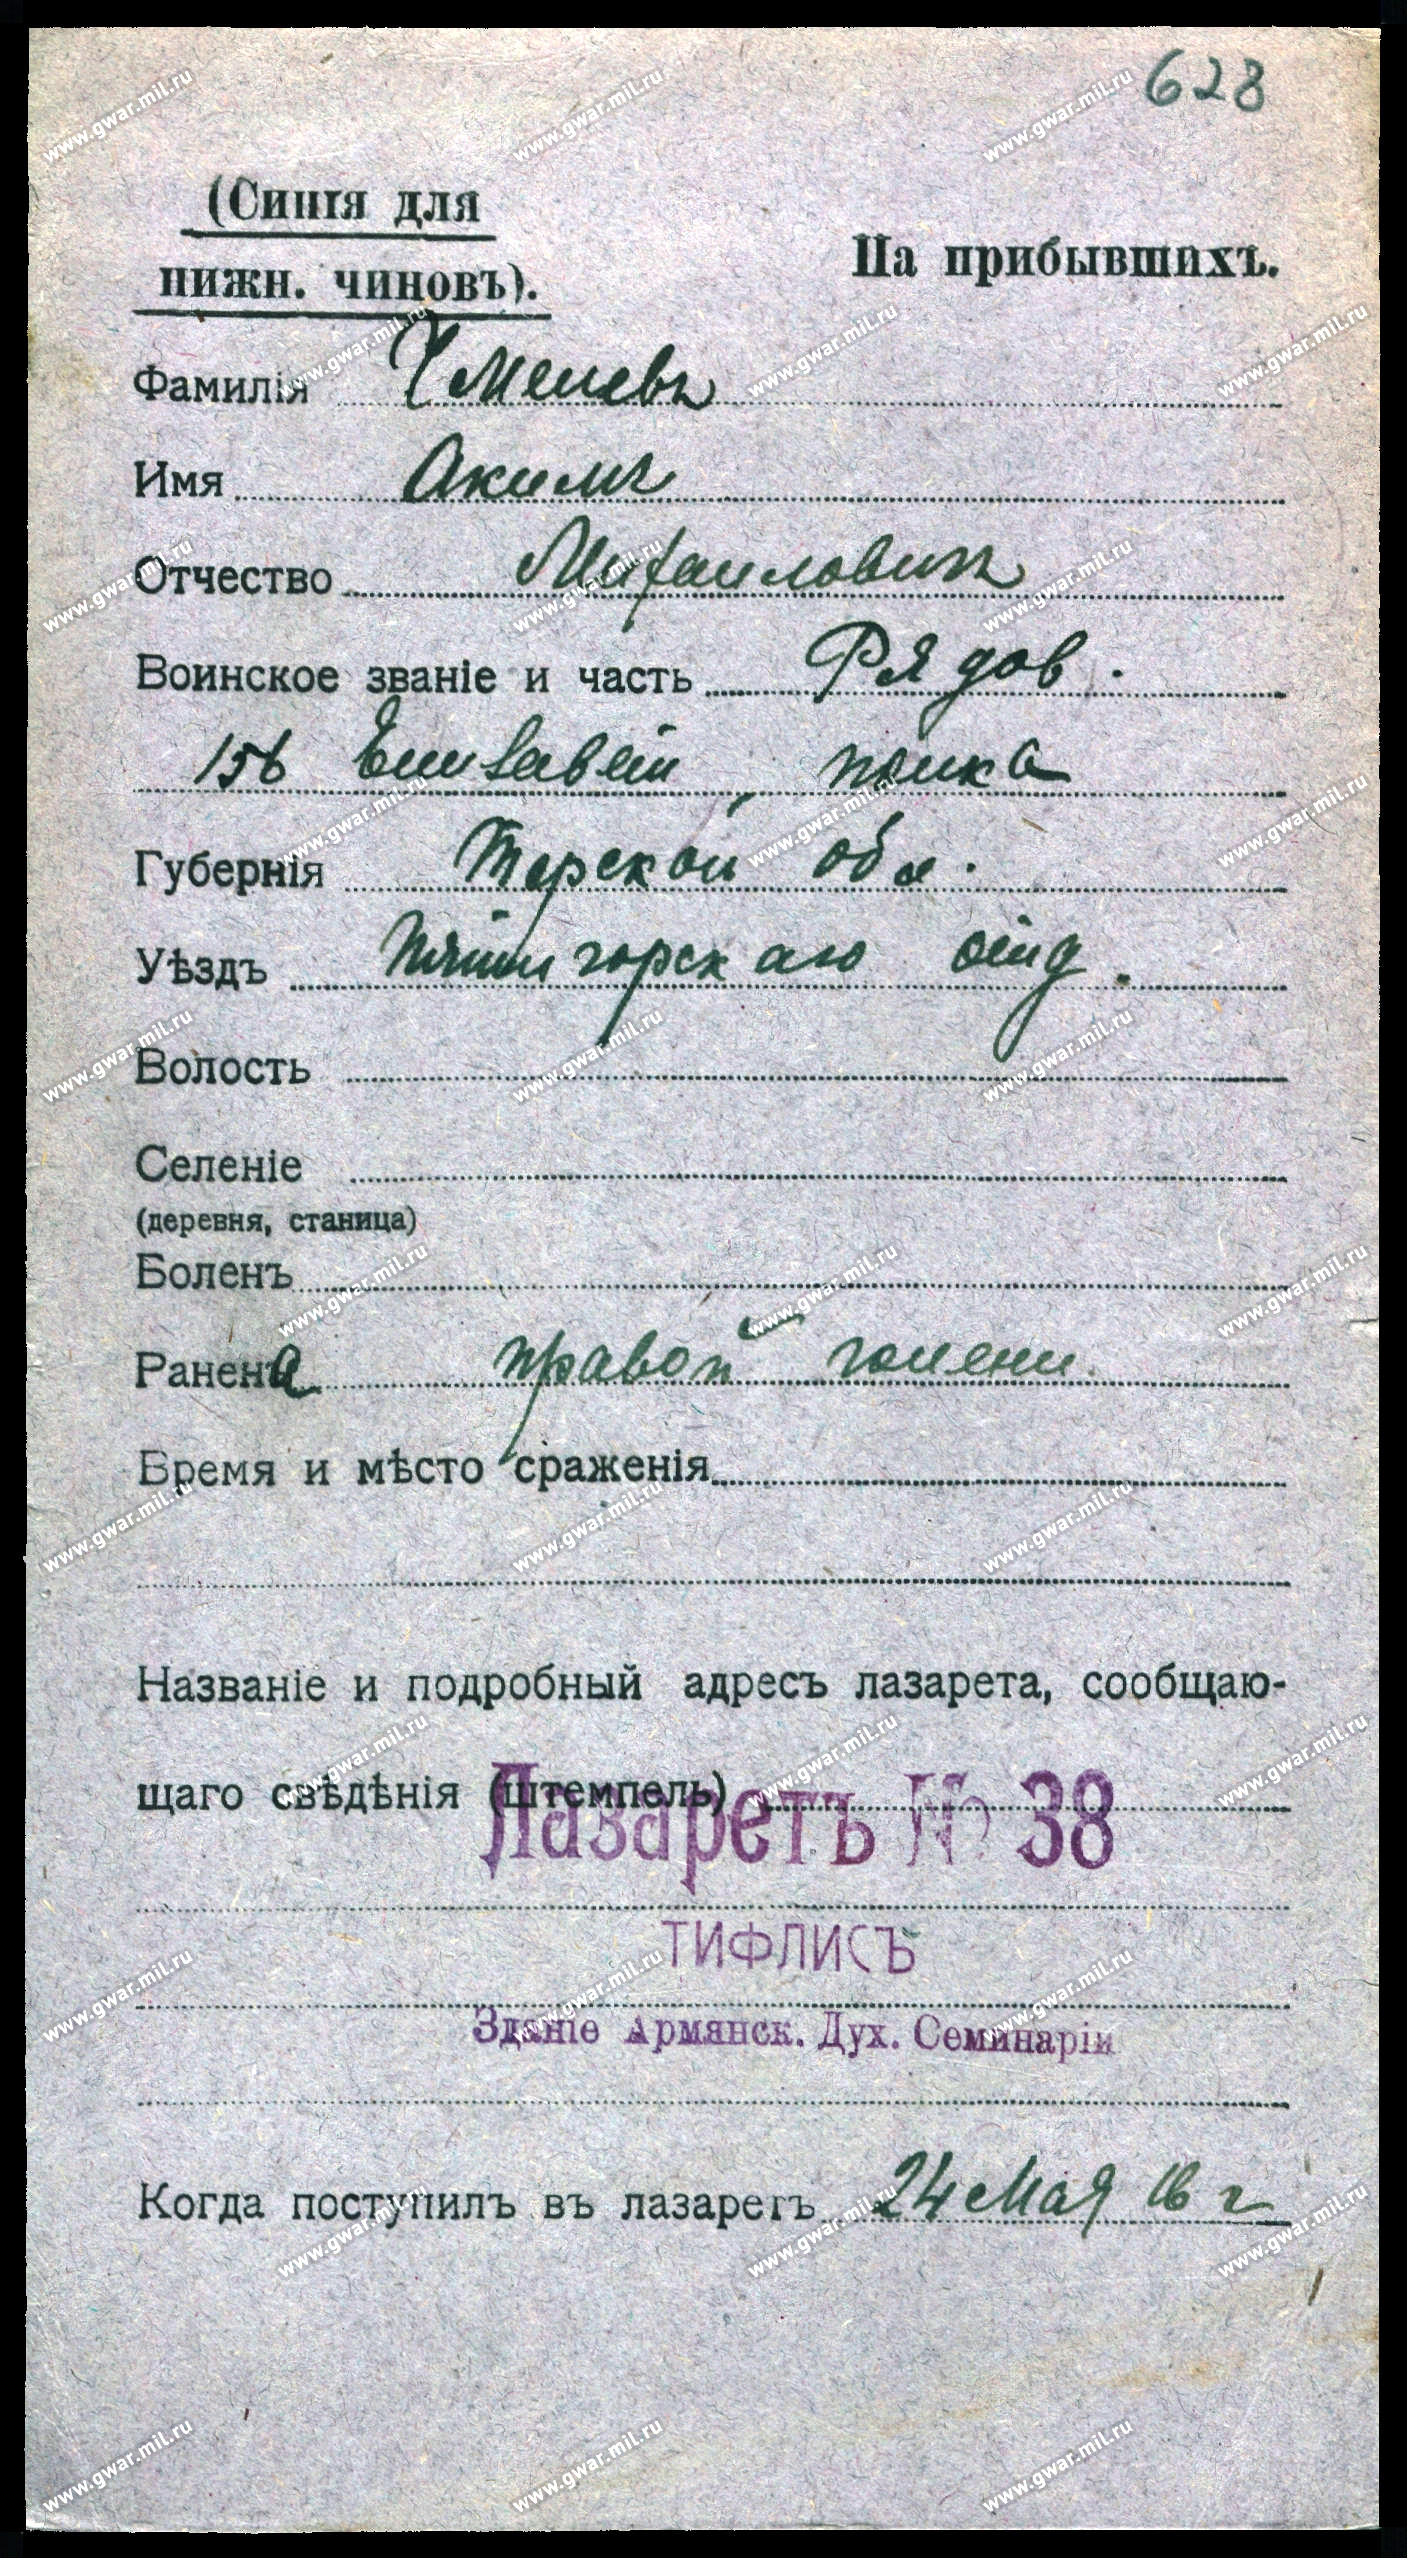 628
(Синія для
нижн. чиновъ).
На прибывшихъ.
Фамилія Чмелевъ
Имя Акимъ
Отчество Михаиловичъ
Воинское званіе и часть Рядов.
156 Елизавет полка
Губернія Терской обл.
Уѣздъ Пятигорскаго отд.
Волость
Селеніе
(деревня, станица)
Боленъ
Ранена правой голени.
Время и мѣсто сраженія
Названіе и подробный адресъ лазарета, сообщаю-
щаго свѣдѣнія (штемпель)
Лазаретъ № 38
ТИФЛИСЪ
Зданіе Армянск. Дух. Семинаріи
Когда поступилъ въ лазаретъ 24 Мая 16 г
www.gwar.mil.ru